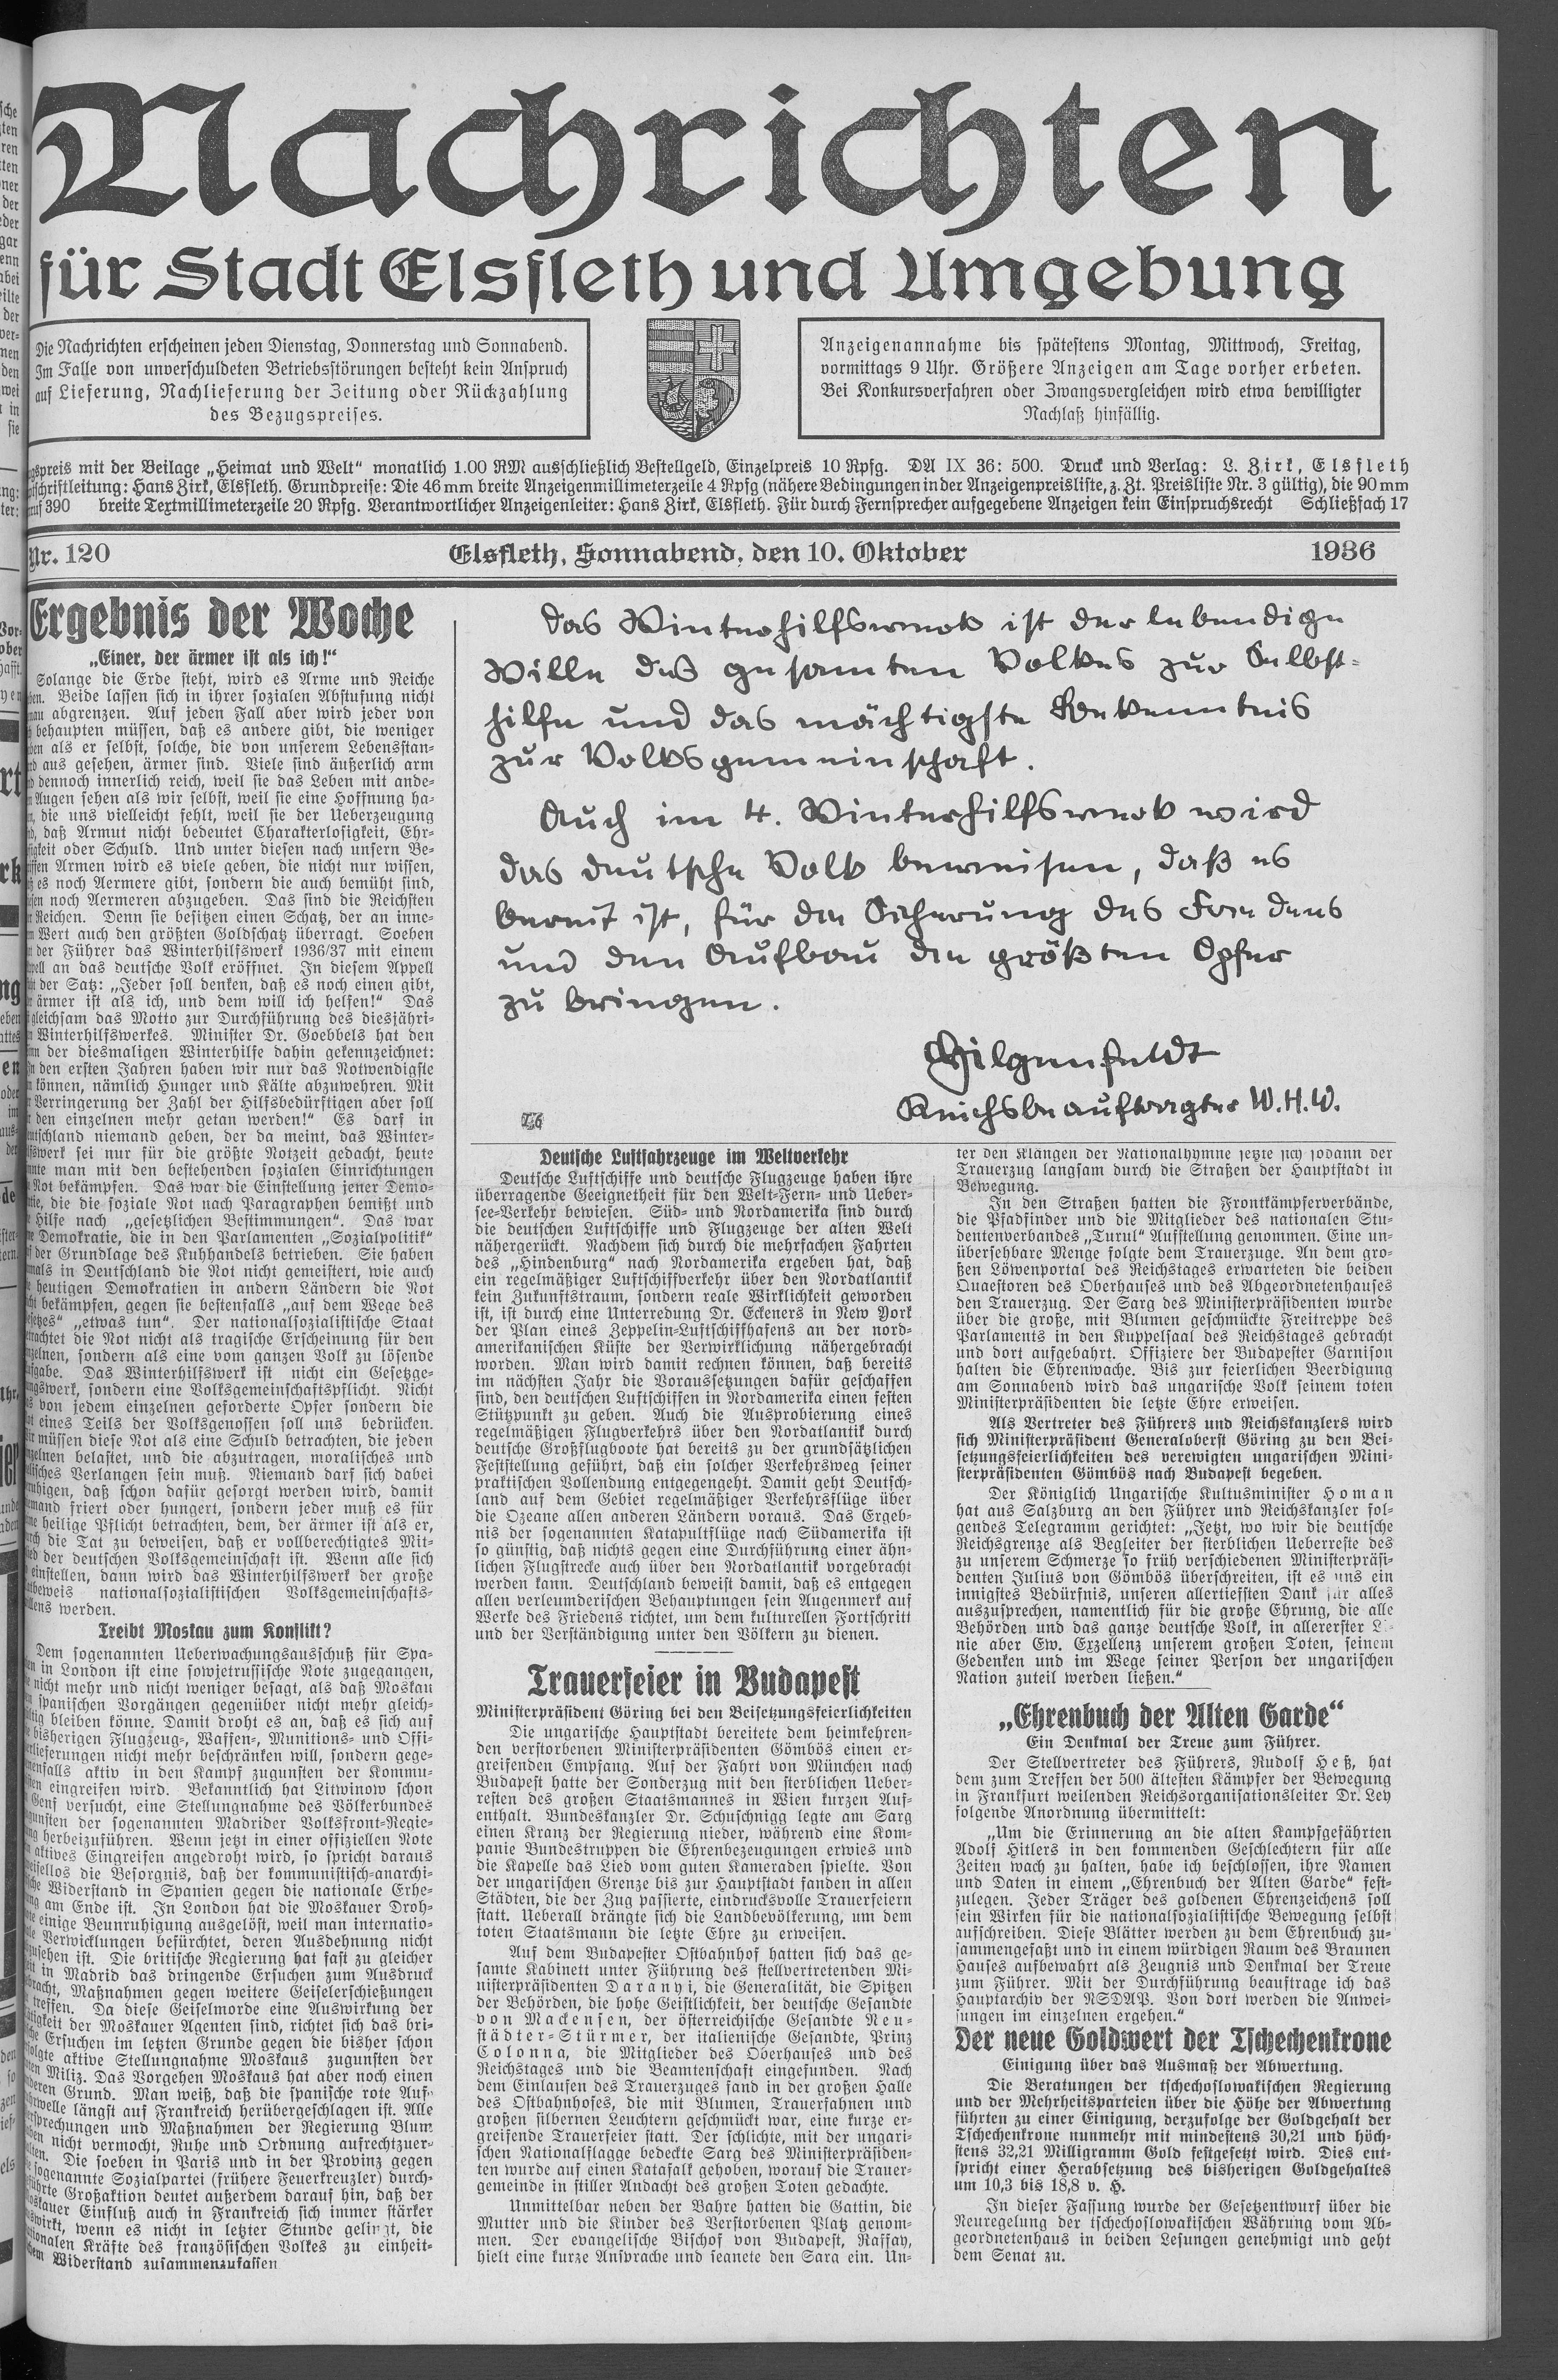 Nachrichten
für Stadt Elsfleth und Umgebung
Die Nachrichten erscheinen jeden Dienstag, Donnerstag und Sonnabend.
Im Falle von unverschuldeten Betriebsstörungen besteht kein Anspruch
auf Lieferung, Nachlieferung der Zeitung oder Rückzahlung
des Bezugspreises.
Anzeigenannahme bis spätestens Montag, Mittwoch, Freitag,
vormittags 9 Uhr. Größere Anzeigen am Tage vorher erbeten.
Bei Konkursverfahren oder Zwangsvergleichen wird etwa bewilligter
Nachlaß hinfällig.
mit der Beilage „Heimat und Welt“ monatlich 1.00 RM ausschließlich Bestellgeld, Einzelpreis 10 Rpfg. DA IX 36: 500. Druck und Verlag: L. Zirk, Elsfleth
Hans Zirk, Elsfleth. Grundpreise: Die 46 mm breite Anzeigenmillimeterzeile 4 Rpfg (nähere Bedingungen in der Anzeigenpreisliste, z. Zt. Preisliste Nr. 3 gültig), die 90 mm
390 breite Textmillimeterzeile 20 Rpfg. Verantwortlicher Anzeigenleiter: Hans Zirk, Elsfleth. Für durch Fernsprecher aufgegebene Anzeigen kein Einspruchsrecht Schließfach 17
Nr. 120 Elsfleth, Sonnabend, den 10. Oktober 1936
Ergebnis der Woche
„Einer, der ärmer ist als ich!“
Solange die Erde steht, wird es Arme und Reiche
Beide lassen sich in ihrer sozialen Abstufung nicht
abgrenzen. Auf jeden Fall aber wird jeder von
behaupten müssen, daß es andere gibt, die weniger
als er selbst, solche, die von unserem Lebensstan-
aus gesehen, ärmer sind. Viele sind äußerlich arm
dennoch innerlich reich, weil sie das Leben mit ande-
Augen sehen als wir selbst, weil sie eine Hoffnung ha-
die uns vielleicht fehlt, weil sie der Ueberzeugung
daß Armut nicht bedeutet Charakterlosigkeit, Ehr-
oder Schuld. Und unter diesen nach unsern Be-
Armen wird es viele geben, die nicht nur wissen,
es noch Aermere gibt, sondern die auch bemüht sind,
noch Aermeren abzugeben. Das sind die Reichsten
Reichen. Denn sie besitzen einen Schatz, der an inne-
Wert auch den größten Goldschatz überragt. Soeben
der Führer das Winterhilfswerk 1936/37 mit einem
an das deutsche Volk eröffnet. In diesem Appell
der Satz: „Jeder soll denken, daß es noch einen gibt,
ärmer ist als ich, und dem will ich helfen!“ Das
gleichsam das Motto zur Durchführung des diesjähri-
Winterhilfswerkes. Minister Dr. Goebbels hat den
der diesmaligen Winterhilfe dahin gekennzeichnet:
den ersten Jahren haben wir nur das Notwendigste
können, nämlich Hunger und Kälte abzuwehren. Mit
Verringerung der Zahl der Hilfsbedürftigen aber soll
den einzelnen mehr getan werden!“ Es darf in
niemand geben, der da meint, das Winter-
sei nur für die größte Notzeit gedacht, heute
man mit den bestehenden sozialen Einrichtungen
Not bekämpfen. Das war die Einstellung jener Demo-
die die soziale Not nach Paragraphen bemißt und
Hilfe nach „gesetzlichen Bestimmungen“. Das war
Demokratie, die in den Parlamenten „Sozialpolitik“
der Grundlage des Kuhhandels betrieben. Sie haben
in Deutschland die Not nicht gemeistert, wie auch
heutigen Demokratien in andern Ländern die Not
bekämpfen, gegen sie bestenfalls „auf dem Wege des
„etwas tun“. Der nationalsozialistische Staat
die Not nicht als tragische Erscheinung für den
sondern als eine vom ganzen Volk zu lösende
Das Winterhilfswerk ist nicht ein Gesetzge-
sondern eine Volksgemeinschaftspflicht. Nicht
von jedem einzelnen geforderte Opfer sondern die
eines Teils der Volksgenossen soll uns bedrücken.
müssen diese Not als eine Schuld betrachten, die jeden
belastet, und die abzutragen, moralisches und
Verlangen sein muß. Niemand darf sich dabei
daß schon dafür gesorgt werden wird, damit
friert oder hungert, sondern jeder muß es für
heilige Pflicht betrachten, dem, der ärmer ist als er,
die Tat zu beweisen, daß er vollberechtigtes Mit-
der deutschen Volksgemeinschaft ist. Wenn alle sich
einstellen, dann wird das Winterhilfswerk der große
nationalsozialistischen Volksgemeinschafts-
werden.
Treibt Moskau zum Konflikt?
Dem sogenannten Ueberwachungsausschuß für Spa-
in London ist eine sowjetrussische Note zugegangen,
nicht mehr und nicht weniger besagt, als daß Moskau
spanischen Vorgängen gegenüber nicht mehr gleich-
bleiben könne. Damit droht es an, daß es sich auf
bisherigen Flugzeug-, Waffen-, Munitions- und Offi-
nicht mehr beschränken will, sondern gege-
aktiv in den Kampf zugunsten der Kommu-
eingreifen wird. Bekanntlich hat Litwinow schon
Genf versucht, eine Stellungnahme des Völkerbundes
der sogenannten Madrider Volksfront-Regie-
herbeizuführen. Wenn jetzt in einer offiziellen Note
aktives Eingreifen angedroht wird, so spricht daraus
die Besorgnis, daß der kommunistisch-anarchi-
Widerstand in Spanien gegen die nationale Erhe-
am Ende ist. In London hat die Moskauer Droh-
einige Beunruhigung ausgelöst, weil man internatio-
Verwicklungen befürchtet, deren Ausdehnung nicht
ist. Die britische Regierung hat fast zu gleicher
in Madrid das dringende Ersuchen zum Ausdruck
Maßnahmen gegen weitere Geiselerschießungen
treffen. Da diese Geiselmorde eine Auswirkung der
der Moskauer Agenten sind, richtet sich das bri-
Ersuchen im letzten Grunde gegen die bisher schon
aktive Stellungnahme Moskaus zugunsten der
Miliz. Das Vorgehen Moskaus hat aber noch einen
Grund. Man weiß, daß die spanische rote Auf-
längst auf Frankreich herübergeschlagen ist. Alle
und Maßnahmen der Regierung Blum
nicht vermocht, Ruhe und Ordnung aufrechtzuer-
Die soeben in Paris und in der Provinz gegen
sogenannte Sozialpartei (frühere Feuerkreuzler) durch-
Großaktion deutet außerdem darauf hin, daß der
Einfluß auch in Frankreich sich immer stärker
wenn es nicht in letzter Stunde gelingt, die
Kräfte des französischen Volkes zu einheit-
Widerstand zusammenzufassen
Das Winterhilfswerk ist der lebendige
Wille des gesamten Volkes zur Selbst-
hilfe und das mächtigste Bekenntnis
zur Volksgemeinschaft.
Auch im 4. Winterhilfswerk wird
das deutsche Volk beweisen, daß es
bereit ist, für die Sicherung des Friedens
und den Aufbau die größten Opfer
zu bringen.
Hilgenfeldt
Reichsbeauftragter W.H.W.
Deutsche Luftfahrzeuge im Weltverkehr
Deutsche Luftschiffe und deutsche Flugzeuge haben ihre
überragende Geeignetheit für den Welt-Fern- und Ueber-
see-Verkehr bewiesen. Süd- und Nordamerika sind durch
die deutschen Luftschiffe und Flugzeuge der alten Welt
nähergerückt. Nachdem sich durch die mehrfachen Fahrten
des „Hindenburg“ nach Nordamerika ergeben hat, daß
ein regelmäßiger Luftschiffverkehr über den Nordatlantik
kein Zukunftstraum, sondern reale Wirklichkeit geworden
ist, ist durch eine Unterredung Dr. Eckeners in New York
der Plan eines Zeppelin-Luftschiffhafens an der nord-
amerikanischen Küste der Verwirklichung nähergebracht
worden. Man wird damit rechnen können, daß bereits
im nächsten Jahr die Voraussetzungen dafür geschaffen
sind, den deutschen Luftschiffen in Nordamerika einen festen
Stützpunkt zu geben. Auch die Ausprobierung eines
regelmäßigen Flugverkehrs über den Nordatlantik durch
deutsche Großflugboote hat bereits zu der grundsätzlichen
Feststellung geführt, daß ein solcher Verkehrsweg seiner
praktischen Vollendung entgegengeht. Damit geht Deutsch-
land auf dem Gebiet regelmäßiger Verkehrsflüge über
die Ozeane allen anderen Ländern voraus. Das Ergeb-
nis der sogenannten Katapultflüge nach Südamerika ist
so günstig, daß nichts gegen eine Durchführung einer ähn-
lichen Flugstrecke auch über den Nordatlantik vorgebracht
werden kann. Deutschland beweist damit, daß es entgegen
allen verleumderischen Behauptungen sein Augenmerk auf
Werke des Friedens richtet, um dem kulturellen Fortschritt
und der Verständigung unter den Völkern zu dienen.
Trauerfeier in Budapest
Ministerpräsident Göring bei den Beisetzungsfeierlichkeiten
Die ungarische Hauptstadt bereitete dem heimkehren-
den verstorbenen Ministerpräsidenten Gömbös einen er-
greifenden Empfang. Auf der Fahrt von München nach
Budapest hatte der Sonderzug mit den sterblichen Ueber-
resten des großen Staatsmannes in Wien kurzen Auf-
enthalt. Bundeskanzler Dr. Schuschnigg legte am Sarg
einen Kranz der Regierung nieder, während eine Kom-
panie Bundestruppen die Ehrenbezeugungen erwies und
die Kapelle das Lied vom guten Kameraden spielte. Von
der ungarischen Grenze bis zur Hauptstadt fanden in allen
Städten, die der Zug passierte, eindrucksvolle Trauerfeiern
statt. Ueberall drängte sich die Landbevölkerung, um dem
toten Staatsmann die letzte Ehre zu erweisen.
Auf dem Budapester Ostbahnhof hatten sich das ge-
samte Kabinett unter Führung des stellvertretenden Mi-
nisterpräsidenten Daranyi, die Generalität, die Spitzen
der Behörden, die hohe Geistlichkeit, der deutsche Gesandte
von Mackensen, der österreichische Gesandte Neu-
städter-Stürmer, der italienische Gesandte, Prinz
Colonna, die Mitglieder des Oberhauses und des
Reichstages und die Beamtenschaft eingefunden. Nach
dem Einlaufen des Trauerzuges fand in der großen Halle
des Ostbahnhofes, die mit Blumen, Trauerfahnen und
großen silbernen Leuchtern geschmückt war, eine kurze er-
greifende Trauerfeier statt. Der schlichte, mit der ungari-
schen Nationalflagge bedeckte Sarg des Ministerpräsiden-
ten wurde auf einen Katafalk gehoben, worauf die Trauer-
gemeinde in stiller Andacht des großen Toten gedachte.
Unmittelbar neben der Bahre hatten die Gattin, die
Mutter und die Kinder des Verstorbenen Platz genom-
men. Der evangelische Bischof von Budapest, Raffay,
hielt eine kurze Ansprache und segnete den Sarg ein. Un-
ter den Klängen der Nationalhymne setzte sich sodann der
Trauerzug langsam durch die Straßen der Hauptstadt in
Bewegung.
In den Straßen hatten die Frontkämpferverbände,
die Pfadfinder und die Mitglieder des nationalen Stu-
dentenverbandes „Turul“ Aufstellung genommen. Eine un-
übersehbare Menge folgte dem Trauerzuge. An dem gro-
ßen Löwenportal des Reichstages erwarteten die beiden
Quaestoren des Oberhauses und des Abgeordnetenhauses
den Trauerzug. Der Sarg des Ministerpräsidenten wurde
über die große, mit Blumen geschmückte Freitreppe des
Parlaments in den Kuppelsaal des Reichstages gebracht
und dort aufgebahrt. Offiziere der Budapester Garnison
halten die Ehrenwache. Bis zur feierlichen Beerdigung
am Sonnabend wird das ungarische Volk seinem toten
Ministerpräsidenten die letzte Ehre erweisen.
Als Vertreter des Führers und Reichskanzlers wird
sich Ministerpräsident Generaloberst Göring zu den Bei-
setzungsfeierlichkeiten des verewigten ungarischen Mini-
sterpräsidenten Gömbös nach Budapest begeben.
Der Königlich Ungarische Kultusminister Homan
hat aus Salzburg an den Führer und Reichskanzler fol-
gendes Telegramm gerichtet: „Jetzt, wo wir die deutsche
Reichsgrenze als Begleiter der sterblichen Ueberreste des
zu unserem Schmerze so früh verschiedenen Ministerpräsi-
denten Julius von Gömbös überschreiten, ist es uns ein
innigstes Bedürfnis, unseren allertiefsten Dank für alles
auszusprechen, namentlich für die große Ehrung, die alle
Behörden und das ganze deutsche Volk, in allererster Li-
nie aber Ew. Exzellenz unserem großen Toten, seinem
Gedenken und im Wege seiner Person der ungarischen
Nation zuteil werden ließen.“
„Ehrenbuch der Alten Garde“
Ein Denkmal der Treue zum Führer.
Der Stellvertreter des Führers, Rudolf Heß, hat
dem zum Treffen der 500 ältesten Kämpfer der Bewegung
in Frankfurt weilenden Reichsorganisationsleiter Dr. Ley
folgende Anordnung übermittelt:
„Um die Erinnerung an die alten Kampfgefährten
Adolf Hitlers in den kommenden Geschlechtern für alle
Zeiten wach zu halten, habe ich beschlossen, ihre Namen
und Daten in einem „Ehrenbuch der Alten Garde“ fest-
zulegen. Jeder Träger des goldenen Ehrenzeichens soll
sein Wirken für die nationalsozialistische Bewegung selbst
aufschreiben. Diese Blätter werden zu dem Ehrenbuch zu-
sammengefaßt und in einem würdigen Raum des Braunen
Hauses aufbewahrt als Zeugnis und Denkmal der Treue
zum Führer. Mit der Durchführung beauftrage ich das
Hauptarchiv der NSDAP. Von dort werden die Anwei-
sungen im einzelnen ergehen.“
Der neue Goldwert der Tschechenkrone
Einigung über das Ausmaß der Abwertung.
Die Beratungen der tschechoslowakischen Regierung
und der Mehrheitsparteien über die Höhe der Abwertung
führten zu einer Einigung, derzufolge der Goldgehalt der
Tschechenkrone nunmehr mit mindestens 30,21 und höch-
stens 32,21 Milligramm Gold festgesetzt wird. Dies ent-
spricht einer Herabsetzung des bisherigen Goldgehaltes
um 10,3 bis 18,8 v. H.
In dieser Fassung wurde der Gesetzentwurf über die
Neuregelung der tschechoslowakischen Währung vom Ab-
geordnetenhaus in beiden Lesungen genehmigt und geht
dem Senat zu.